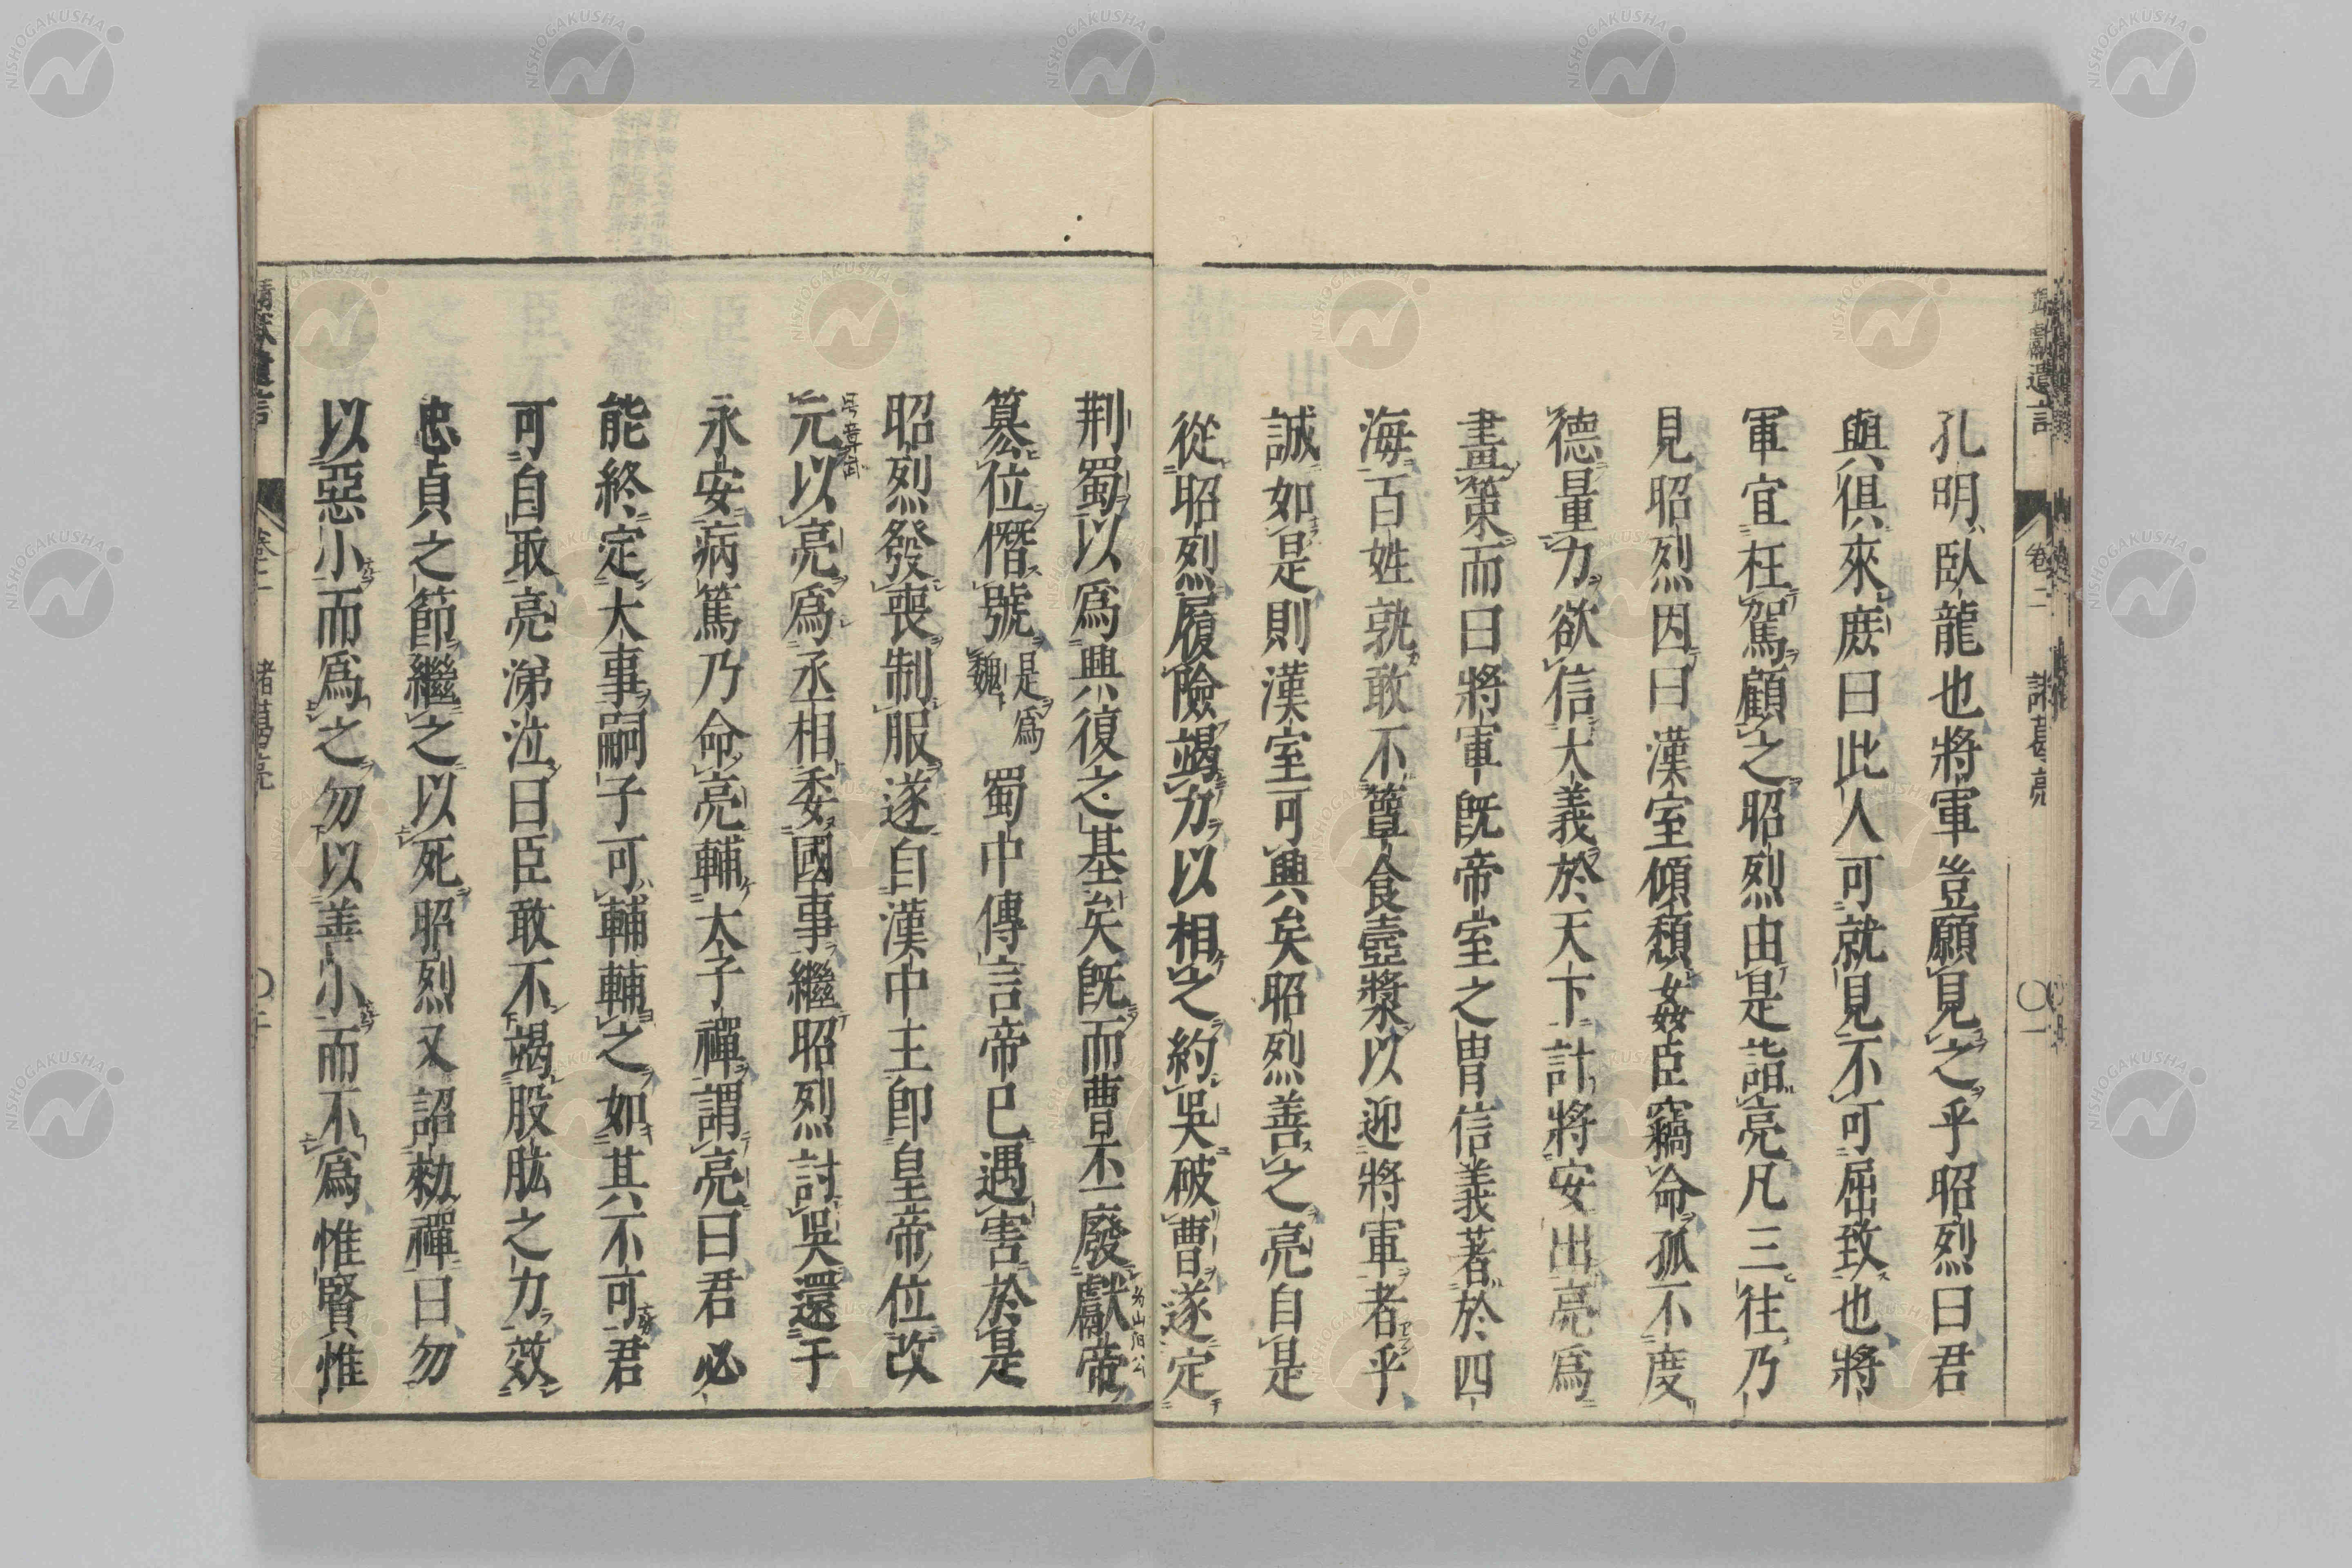 靖獻遺言
卷二
諸葛亮
〇一
孔明臥龍也將軍豈願見之乎昭烈曰君
與俱來庶曰此人可就見不可屈致也將
軍宜枉駕顧之昭烈由是詣亮凡三往乃
見昭烈因曰漢室傾頹姦臣竊命孤不度
德量力欲信大義於天下計將安出亮爲
畫策而曰將軍旣帝室之冑信義著於四
海百姓孰敢不簞食壺漿以迎將軍者乎
誠如是則漢室可興矣昭烈善之亮自是
從昭烈履險竭力以相之約吳破曹遂定
荆蜀以爲興復之基矣旣而曹丕廢獻帝
爲山陽公
簒位僭號是爲魏蜀中傳言帝已遇害於是
昭烈發喪制服遂自漢中王卽皇帝位改
元以亮爲丞相委國事繼昭烈討吳還于
号章武
永安病篤乃命亮輔太子禪謂亮曰君必
能終定大事嗣子可輔輔之如其不可君
可自取亮涕泣曰臣敢不竭股肱之力效
忠貞之節繼之以死昭烈又詔敕禪曰勿
以惡小而爲之勿以善小而不爲惟賢惟
靖獻遺言
卷二
諸葛亮
〇二
NISHOGAKUSHA